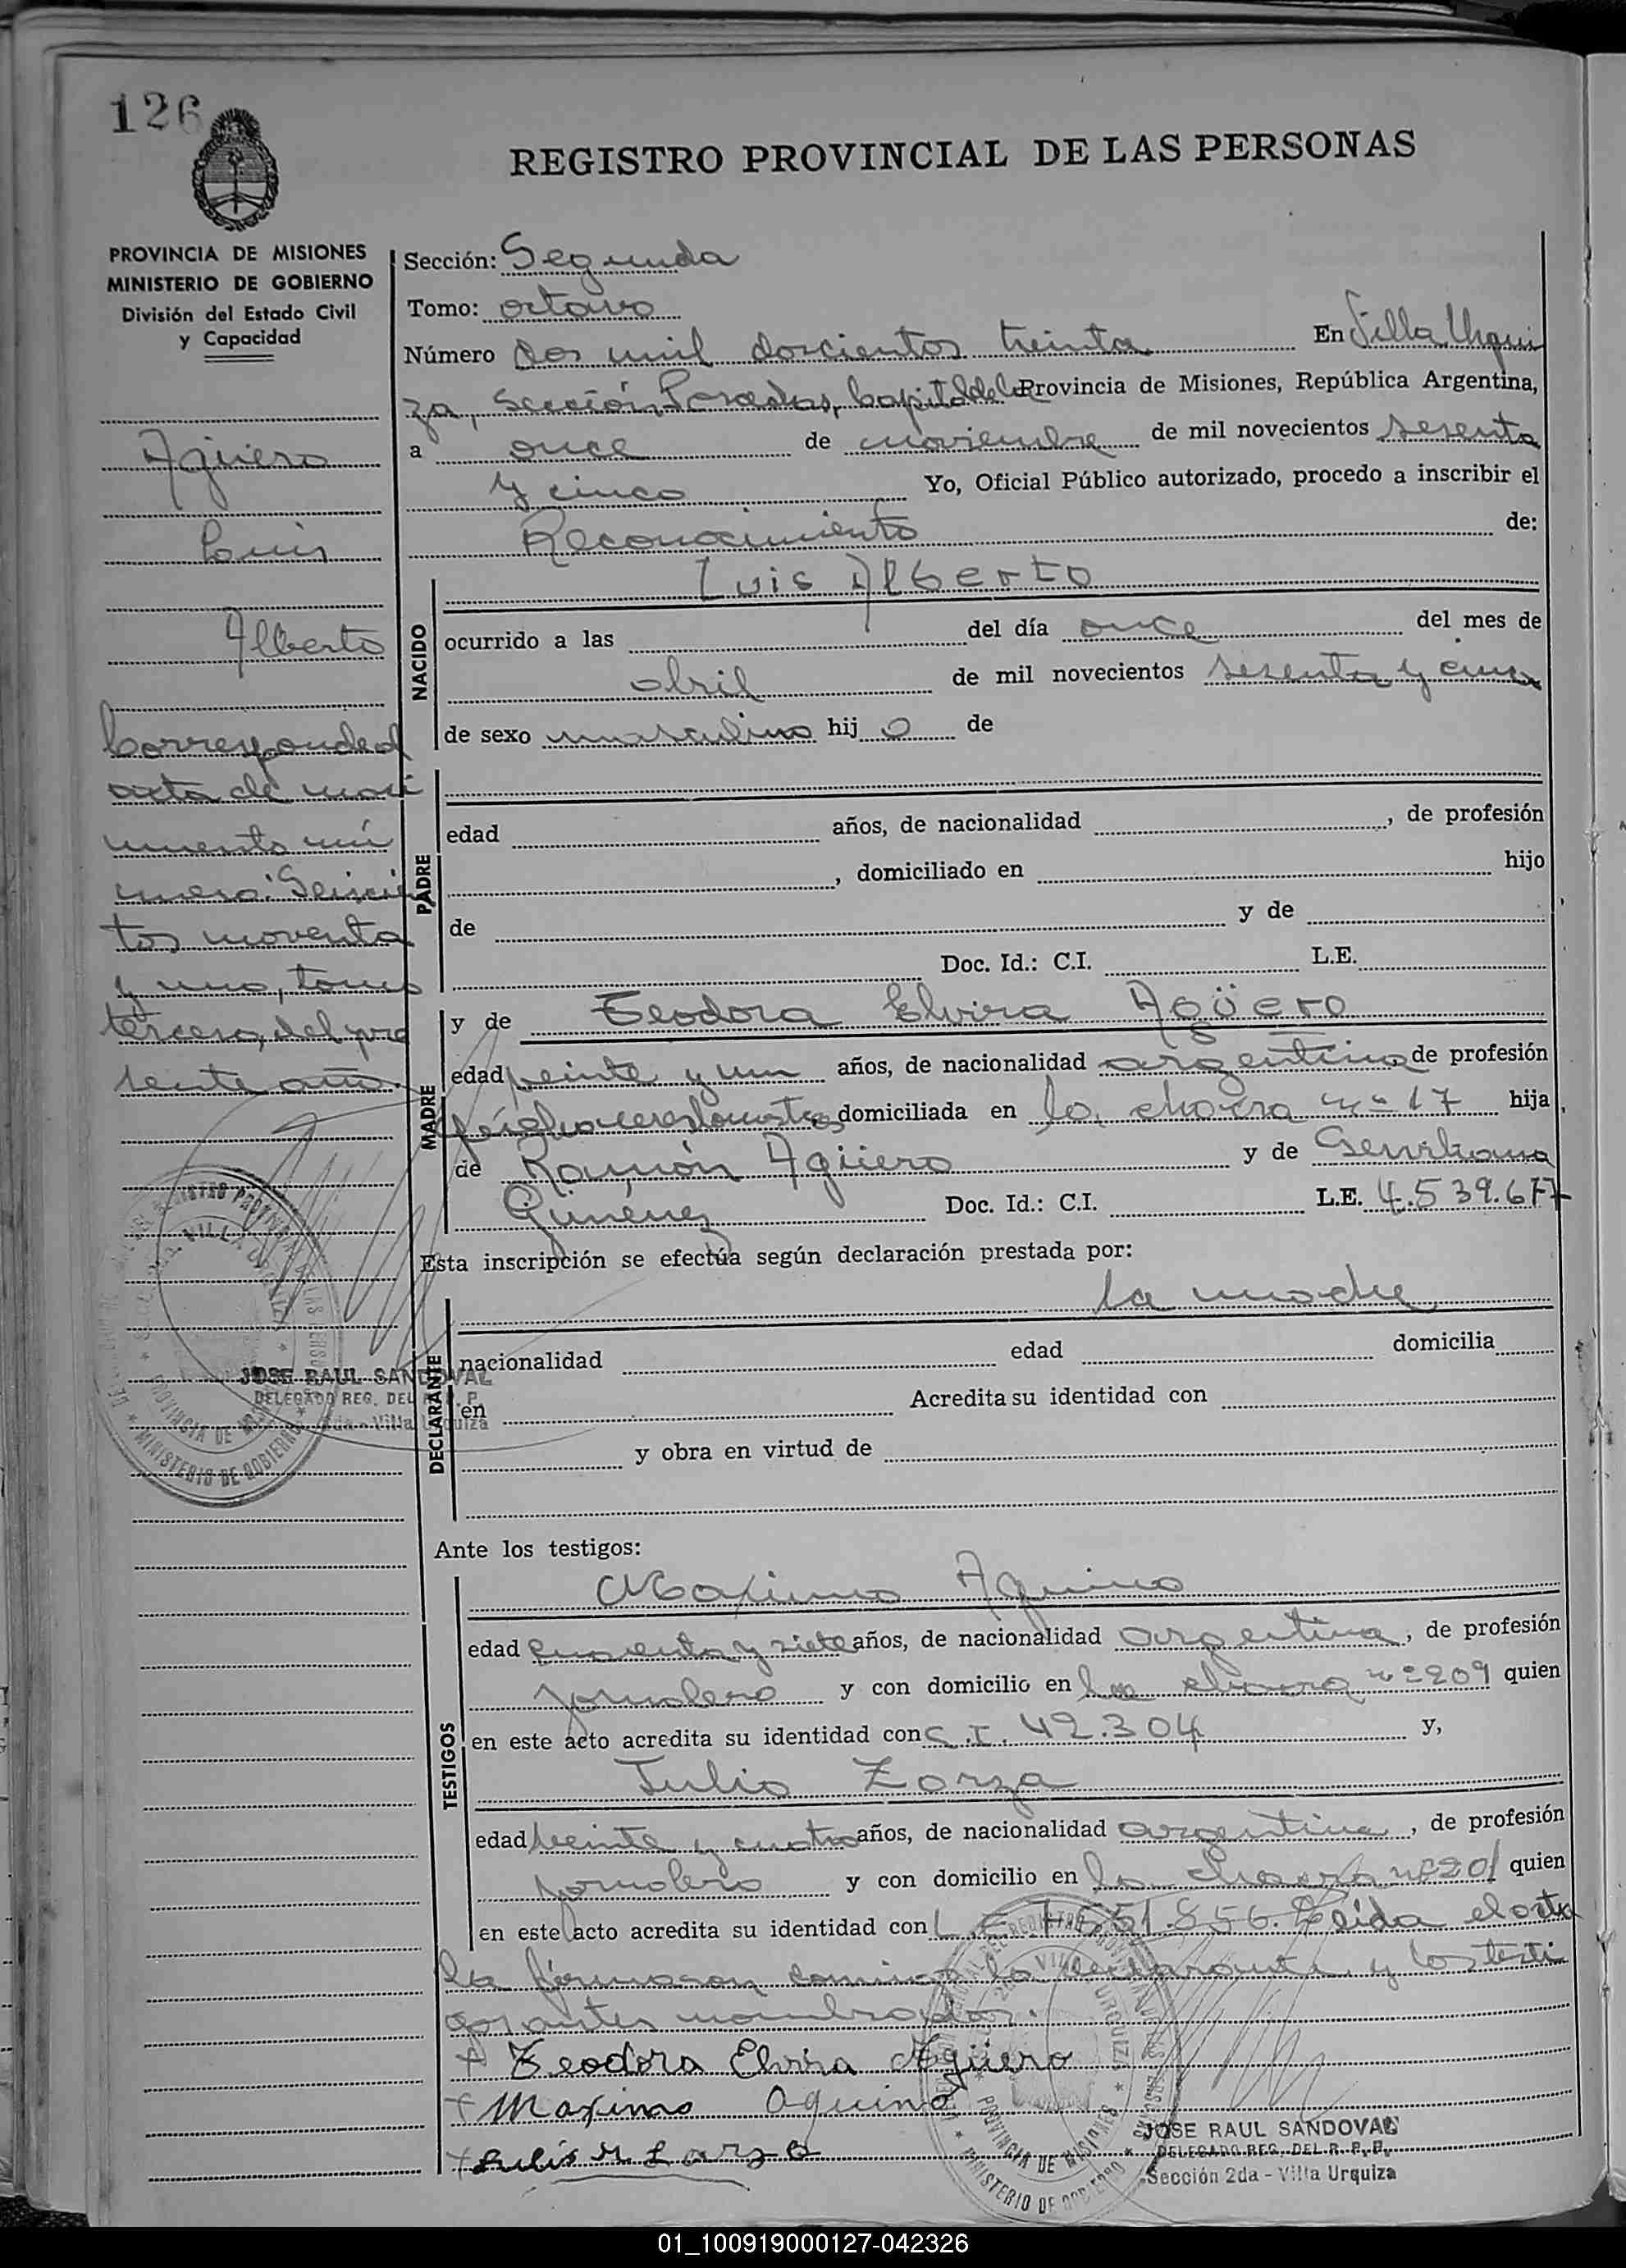 126
REGISTRO PROVINCIAL DE LAS PERSONAS
PROVINCIA DE MISIONES
MINISTERIO DE GOBIERNO
División del Estado Civil
y Capacidad
Agüero
Luis
Alberto
Corresponde al
acta de naci
miento nú
mero: Seiscien
tos noventa
y uno, tomo
tercero, del pre
sente año.
JOSE RAUL SANDOVAL
DELEGADO REG. DEL R. P. P.
2da - Villa Urquiza
Sección: Segunda
Tomo: octavo
Número Dos mil doscientos treinta En Villa Urqui
za, Sección Posadas, Capital de la Provincia de Misiones, República Argentina,
a once de noviembre de mil novecientos sesenta
y cinco Yo, Oficial Público autorizado, procedo a inscribir el
Reconocimiento de:
NACIDO
Luis Alberto
ocurrido a las del día once del mes de
abril de mil novecientos sesenta y cinco
de sexo masculino hijo de
PADRE
edad años, de nacionalidad , de profesión
, domiciliado en hijo
de y de
Doc. Id.: C.I. L.E.
MADRE
y de Teodora Elvira Agüero
edad veinte y un años, de nacionalidad argentina de profesión
domiciliada en la chacra nº 17 hija
de Ramón Agüero y de
Gimenez Doc. Id.: C.I. L.E. 4.539.677
Esta inscripción se efectúa según declaración prestada por:
DECLARANTE
la madre
nacionalidad edad domicilia
en Acredita su identidad con
y obra en virtud de
Ante los testigos:
TESTIGOS
Maximo Aquino
edad y siete años, de nacionalidad argentina, de profesión
jornalero y con domicilio en la chacra nº 209 quien
en este acto acredita su identidad con C.I. 42.304 y,
Julio Zorza
edad veinte y cuatro años, de nacionalidad argentina, de profesión
jornalero y con domicilio en la chacra nº 201 quien
en este acto acredita su identidad con L.E. Leida el acta
la firmaron conmigo la declarante y los testi
gos antes nombrados.
+ Teodora Elvira Agüero
+ Maximo Aquino
JOSE RAUL SANDOVAL
DELEGADO REG. DEL R. P. P.
Sección 2da - Villa Urquiza
01_100919000127-042326